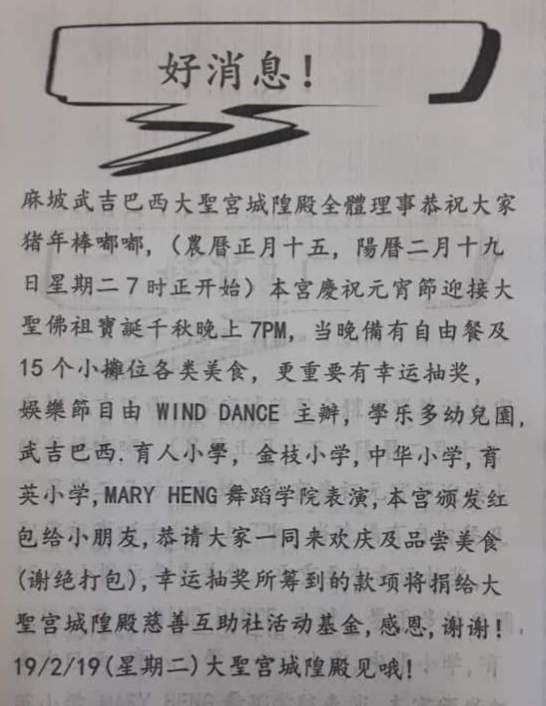 好消息!
麻坡武吉巴西大聖宮城隍殿全體理事恭祝大家
猪年棒嘟嘟,(農曆正月十五,陽曆二月十九
日星期二7时正开始)本宮慶祝元宵節迎接大
聖佛祖寶誕千秋晚上7PM,当晚備有自由餐及
15个小攤位各类美食,更重要有幸运抽奖,
娛樂節目由 WIND DANCE 主辦,學乐多幼兒園,
武吉巴西.育人小學,金枝小学,中华小学,育
英小学,MARY HENG舞蹈学院表演,本宫颁发红
包给小朋友,恭请大家一同来欢庆及品尝美食
(谢绝打包),幸运抽奖所筹到的款项将捐给大
聖宮城隍殿慈善互助社活动基金,感恩,谢谢!
19/2/19(星期二)大聖宮城隍殿见哦!